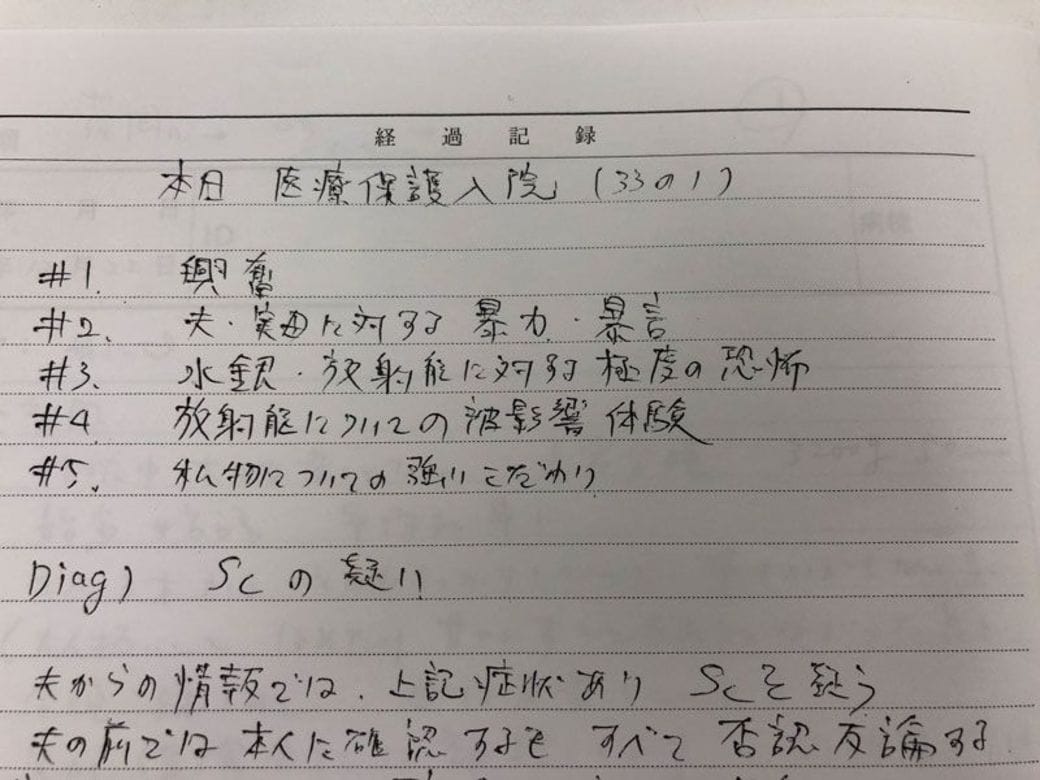 経過記録
本日 医療保護入院 (33の1)
#1. 興奮
#2. 夫・実母に対する 暴力・暴言
#3. 水銀・放射能に対する極度の恐怖
#4 放射能についての被影響体験
#5. 私物についての強いこだわり
Diag) Scの疑い
夫からの情報では、上記症状あり Scを疑う
夫の前では本人に確認するも すべて否認反論する